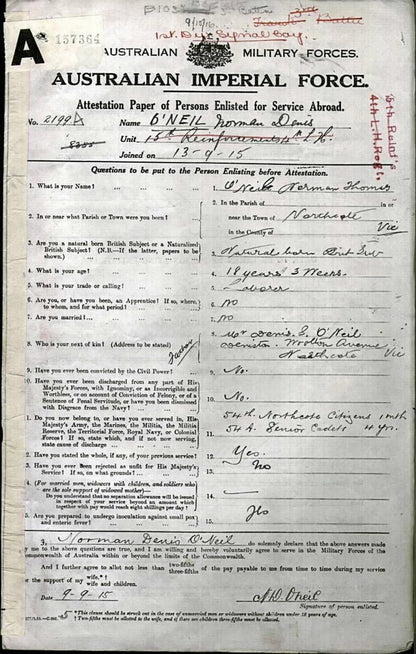 9/12/16
1st Div Signal Coy.
A 157364
AUSTRALIAN MILITARY FORCES.
AUSTRALIAN IMPERIAL FORCE.
Attestation Paper of Persons Enlisted for Service Abroad.
No. 2199A Name O'NEIL Norman Denis
Unit 13th Reinforcements 4th L.H.
Joined on 13-9-15
15th Rein.
4th L.H. Reg't
Questions to be put to the Person Enlisting before Attestation.
1. What is your Name? 1. O'Neil Norman Thomas
2. In or near what Parish or Town were you born? 2. In the Parish of in or
near the Town of Northcote
in the County of Vic
3. Are you a natural born British Subject or a Naturalized
British Subject? (N.B.—If the latter, papers to be
shown.) 3. Natural born Brit Sub
4. What is your age? 4. 18 years 3 Weeks
5. What is your trade or calling? 5. Laborer
6. Are you, or have you been, an Apprentice? If so, where,
to whom, and for what period? 6. No
7. Are you married? 7. No
8. Who is your next of kin? (Address to be stated) Father 8. Mr Denis E. O'Neil
Avenue
Northcote Vic
9. Have you ever been convicted by the Civil Power? 9. No.
10. Have you ever been discharged from any part of His
Majesty's Forces, with Ignominy, or as Incorrigible and
Worthless, or on account of Conviction of Felony, or of a
Sentence of Penal Servitude, or have you been dismissed
with Disgrace from the Navy? 10. No.
11. Do you now belong to, or have you ever served in, His
Majesty's Army, the Marines, the Militia, the Militia
Reserve, the Territorial Force, Royal Navy, or Colonial
Forces? If so, state which, and if not now serving,
state cause of discharge 11. 54th Northcote Citizens 1 mth
54 A. Senior Cadets 4 yrs.
12. Have you stated the whole, if any, of your previous service? 12. Yes.
13. Have you ever been rejected as unfit for His Majesty's
Service? If so, on what grounds? 13. No
14. (For married men, widowers with children, and soldiers who
are the sole support of widowed mother)—
Do you understand that no separation allowance will be issued
in respect of your service beyond an amount which
together with pay would reach eight shillings per day? 14. —
15. Are you prepared to undergo inoculation against small pox
and enteric fever? 15. Yes
I, Norman Denis O'Neil do solemnly declare that the above answers made
by me to the above questions are true, and I am willing and hereby voluntarily agree to serve in the Military Forces of the
Commonwealth of Australia within or beyond the limits of the Commonwealth.
And I further agree to allot not less than two-fifths
three-fifths of the pay payable to me from time to time during my service
for the support of my wife.*†
wife and children.
Date 9-9-15 N.D. O'Neil
Signature of person enlisted.
*This clause should be struck out in the case of unmarried men or widowers without children under 18 years of age.
† Two-fifths must be allotted to the wife, and if there are children three-fifths must be allotted.